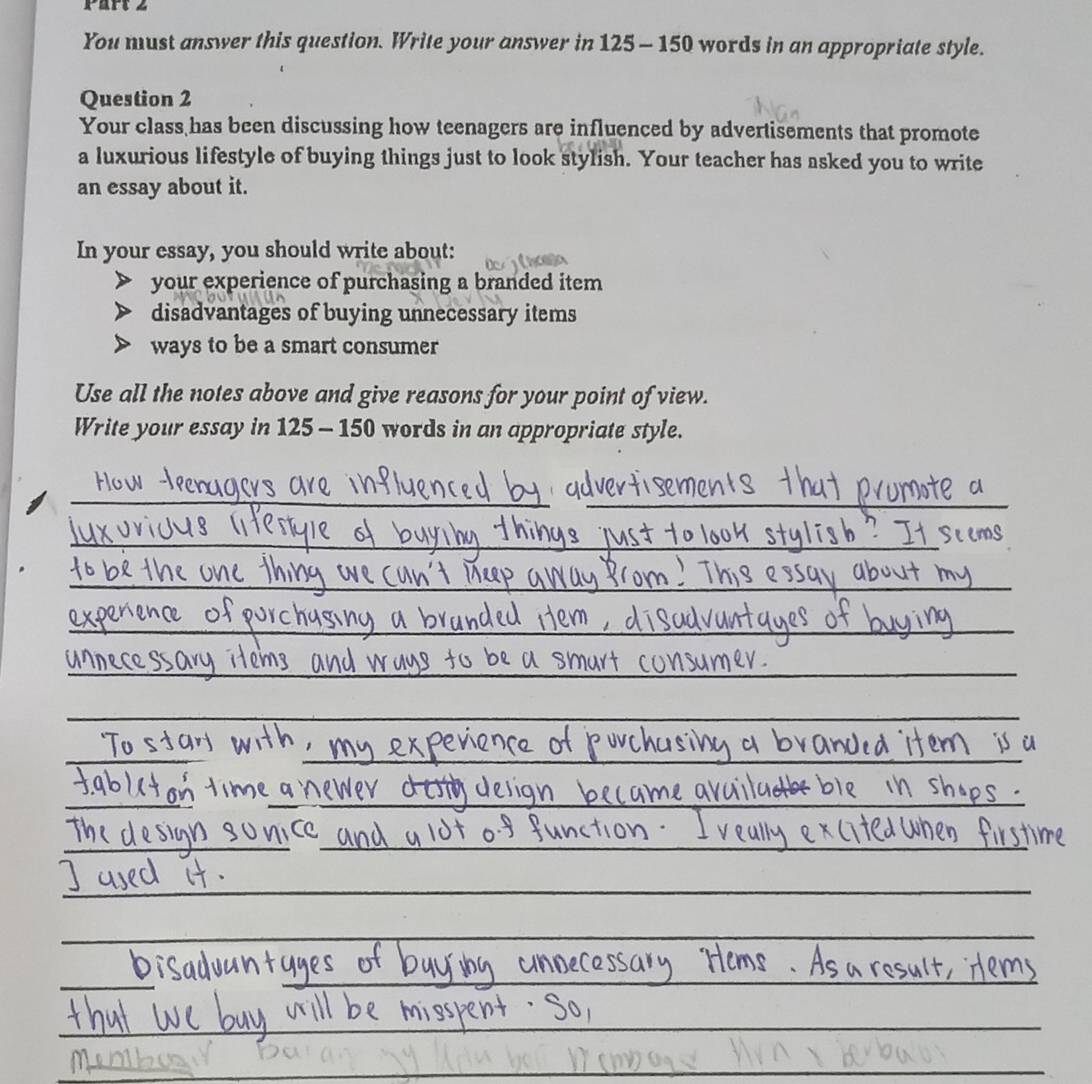 Part 2
You must answer this question. Write your answer in 125 – 150 words in an appropriate style.
Question 2
Your class has been discussing how teenagers are influenced by advertisements that promote
a luxurious lifestyle of buying things just to look stylish. Your teacher has asked you to write
an essay about it.
In your essay, you should write about:
➤ your experience of purchasing a branded item
➤ disadvantages of buying unnecessary items
➤ ways to be a smart consumer
Use all the notes above and give reasons for your point of view.
Write your essay in 125 – 150 words in an appropriate style.
How teenagers are influenced by advertisements that promote a
luxurious lifestyle of buying things just to look stylish? It seems
to be the one thing we can't keep away from! This essay about my
experience of purchasing a branded item, disadvantages of buying
unnecessary items and ways to be a smart consumer.
To start with, my experience of purchasing a branded item is a
tablet on time a newer design became available in shops.
The design so nice and a lot of function. I really excited when firstime
I used it.
Disadvantages of buying unnecessary items. As a result, items
that we buy will be misspent. So,